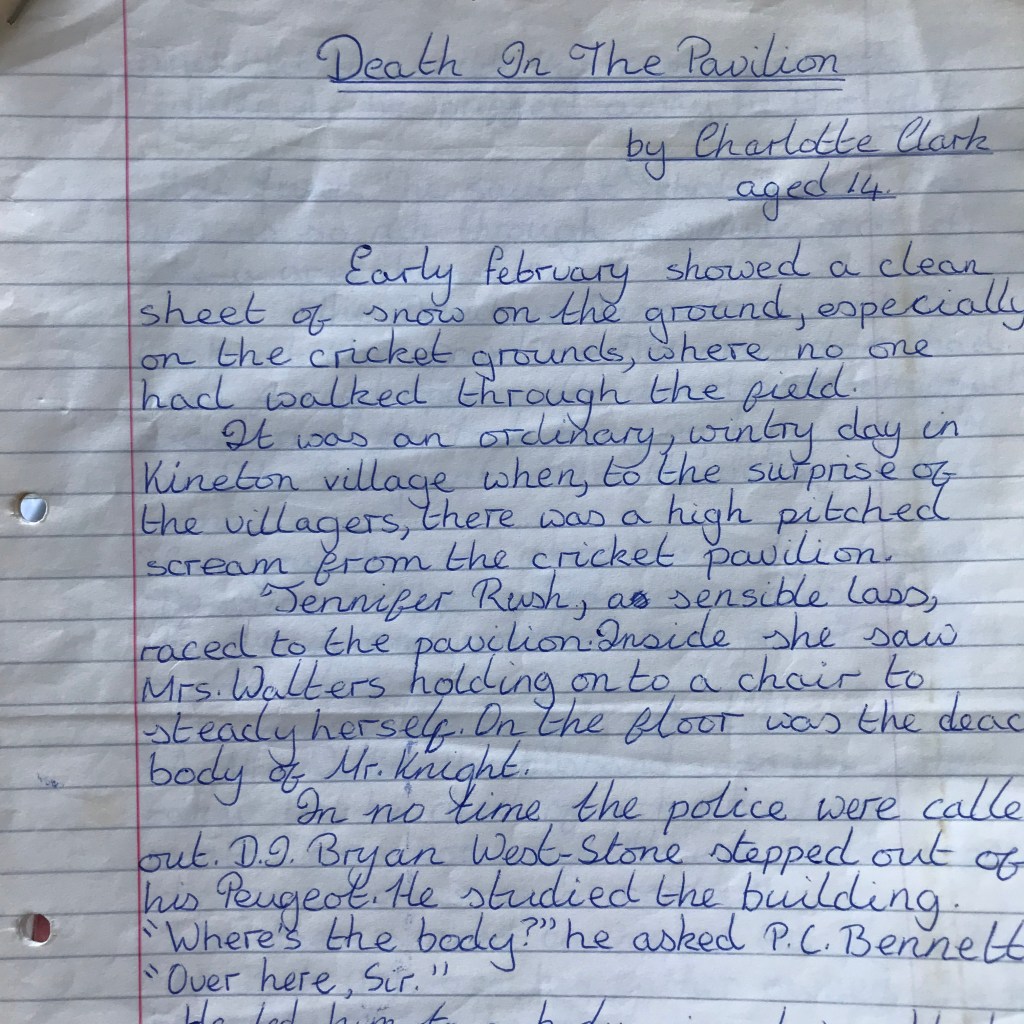 Death In The Pavilion
by Charlotte Clark
aged 14.
Early february showed a clean
sheet of snow on the ground, especially
on the cricket grounds, where no one
had walked through the field.
It was an ordinary, wintry day in
Kineton village when, to the surprise of
the villagers, there was a high pitched
scream from the cricket pavilion.
Jennifer Rush, a sensible lass,
raced to the pavilion. Inside she saw
Mrs. Walters holding on to a chair to
steady herself. On the floor was the dead
body of Mr. Knight.
In no time the police were calle
out. D.I. Bryan West-Stone stepped out of
his Peugeot. He studied the building.
"Where's the body?" he asked P.C. Bennett
"Over here, Sir."
He led him to